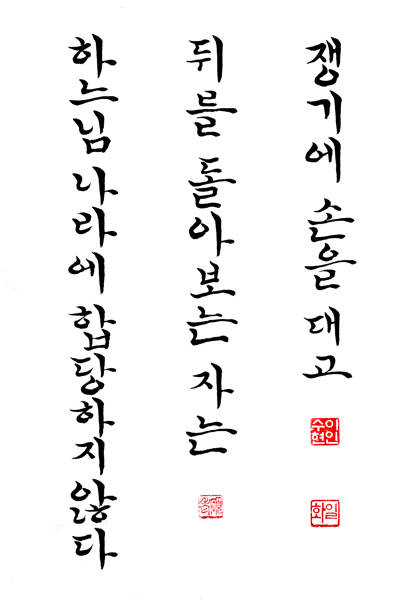 쟁기에 손을 대고
뒤를 돌아보는 자는
하느님 나라에 합당하지 않다
이수현인
일화